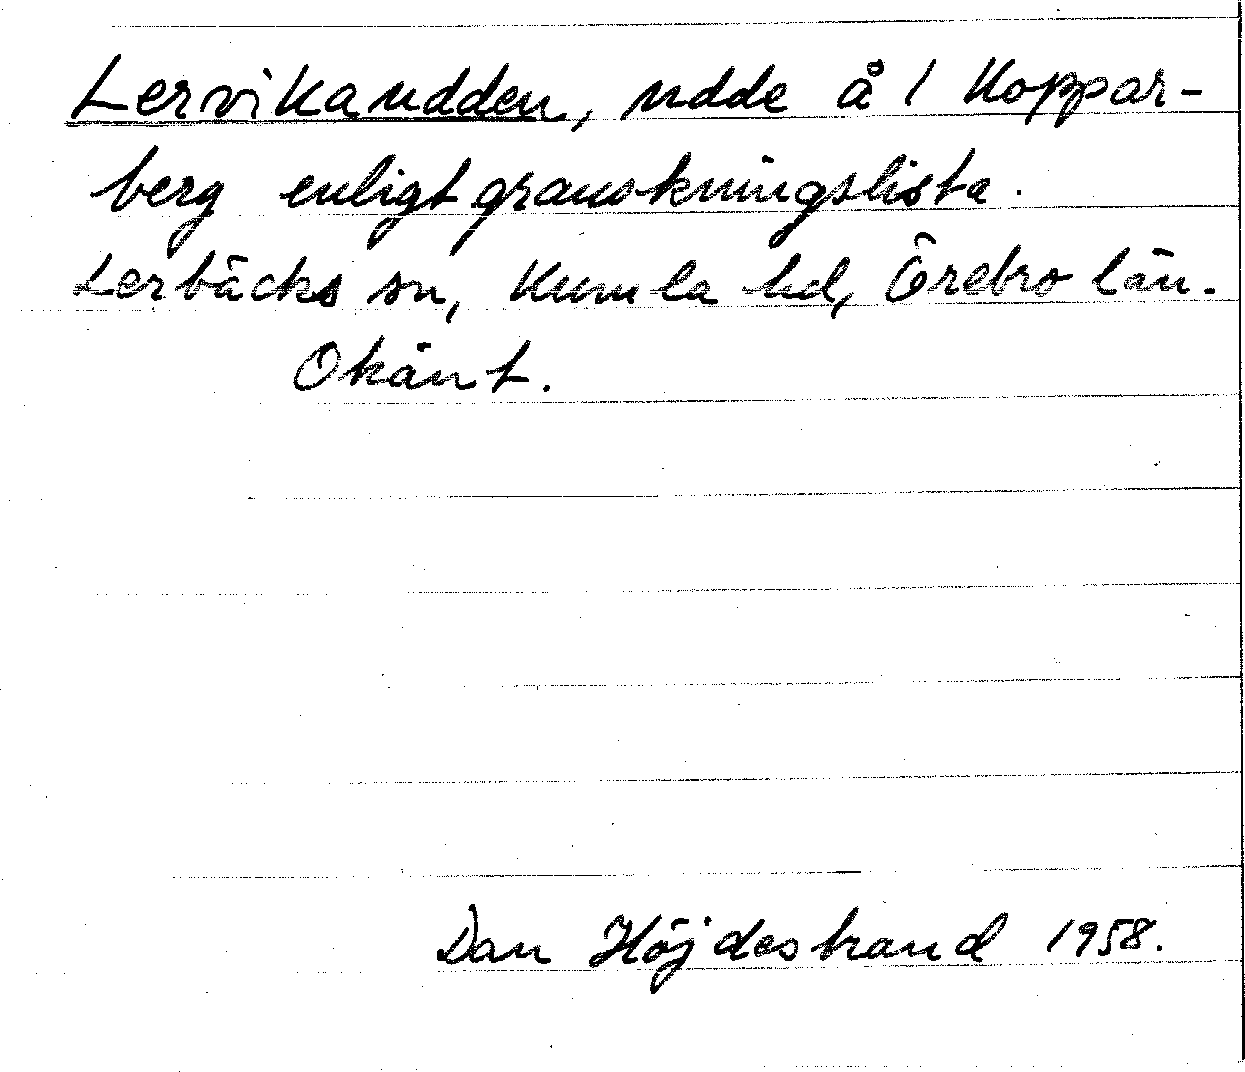 Lervikaudden, udde å 1 Koppar-
berg enligt granskningslista.
Lerbäcks sn, Kumla hd, Örebro län.
Okänt.
Dan Höjdestrand 1958.